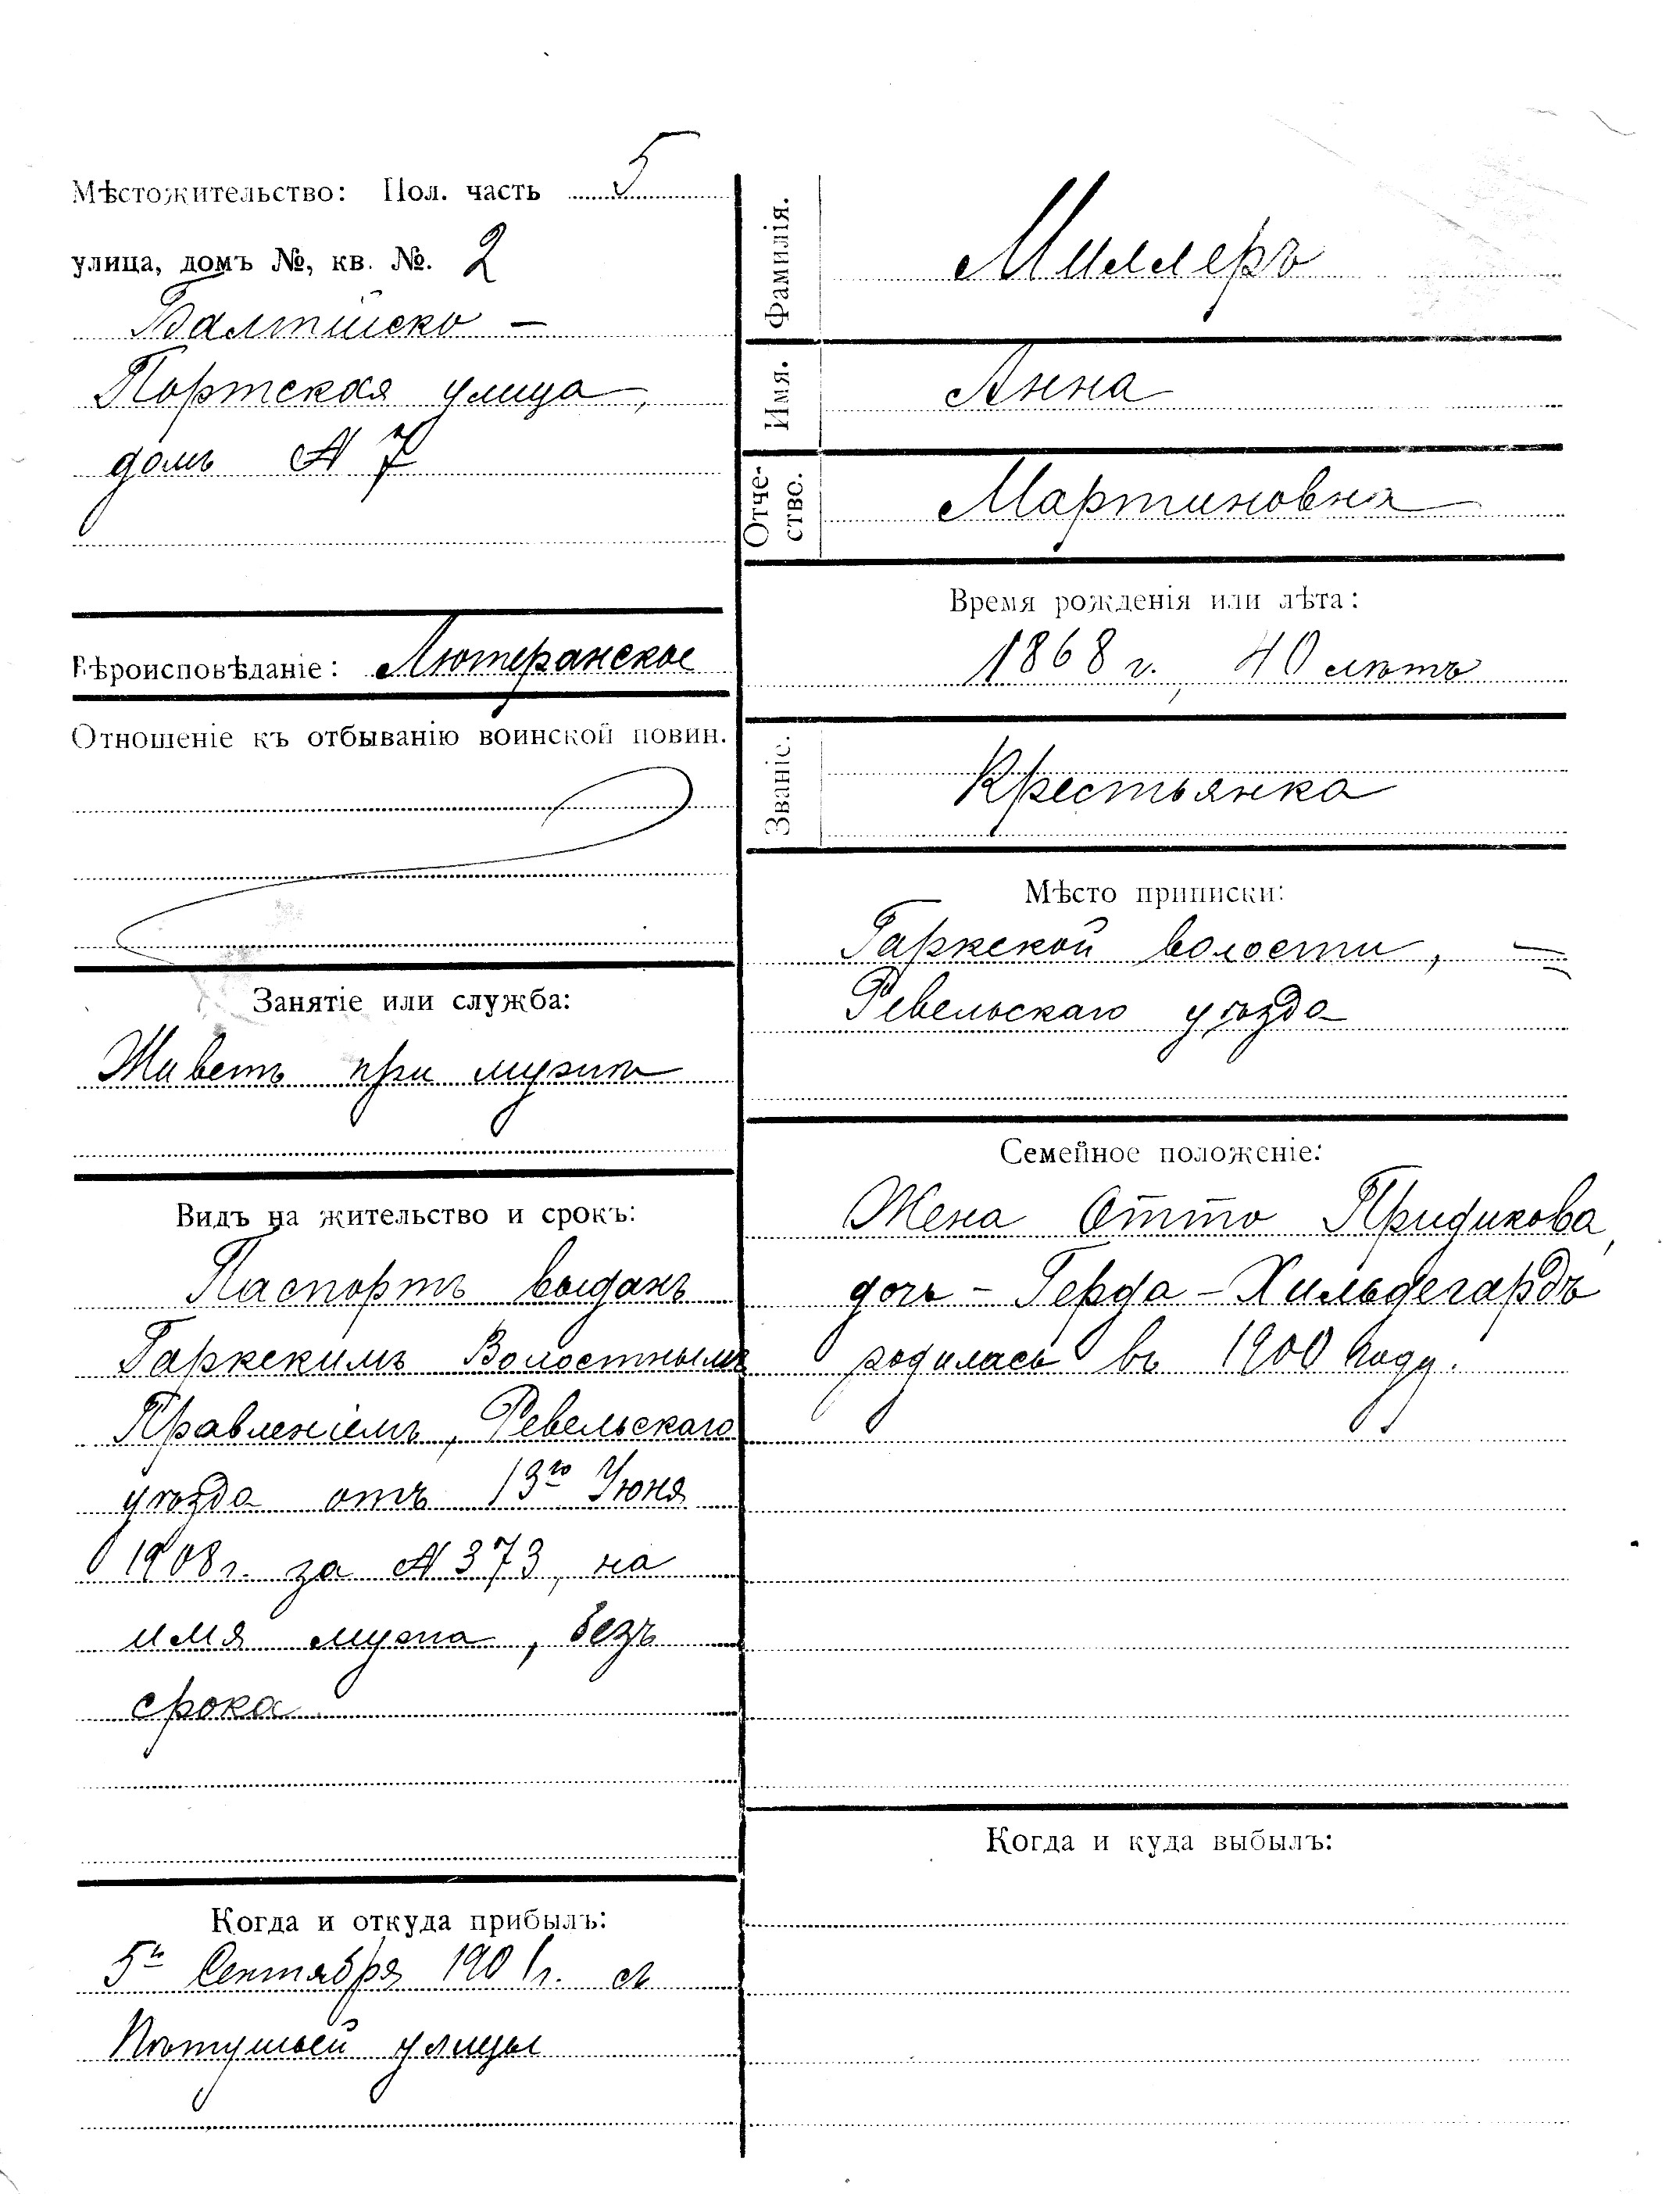 Мѣстожительство: Пол. часть 5
улица, домъ №, кв. №. 2
Балтійско –
Портская улица,
домъ № 7
Вѣроисповѣданіе: Лютеранское
Отношеніе къ отбыванію воинской повин.
Занятіе или служба:
Живетъ при мужѣ
Видъ на жительство и срокъ:
Паспортъ выданъ
Гаркскимъ Волостнымъ
Правленіемъ, Ревельскаго
уѣзда отъ 13го Іюня
1908 г. за № 373, на
имя мужа, безъ
срока
Когда и откуда прибылъ:
5го Сентября 1901 г. съ
Пѣтушьей улицы
Фамилія. Миллеръ
Имя. Анна
Отче-
ство. Мартиновна
Время рожденія или лѣта:
1868 г., 40 лѣтъ
Званіе. Крестьянка
Мѣсто приписки:
Гаркской волости, –
Ревельскаго уѣзда
Семейное положеніе:
Жена Отто Придикова,
дочь – Герда – Хильдегардъ
родилась въ 1900 году.
Когда и куда выбылъ: